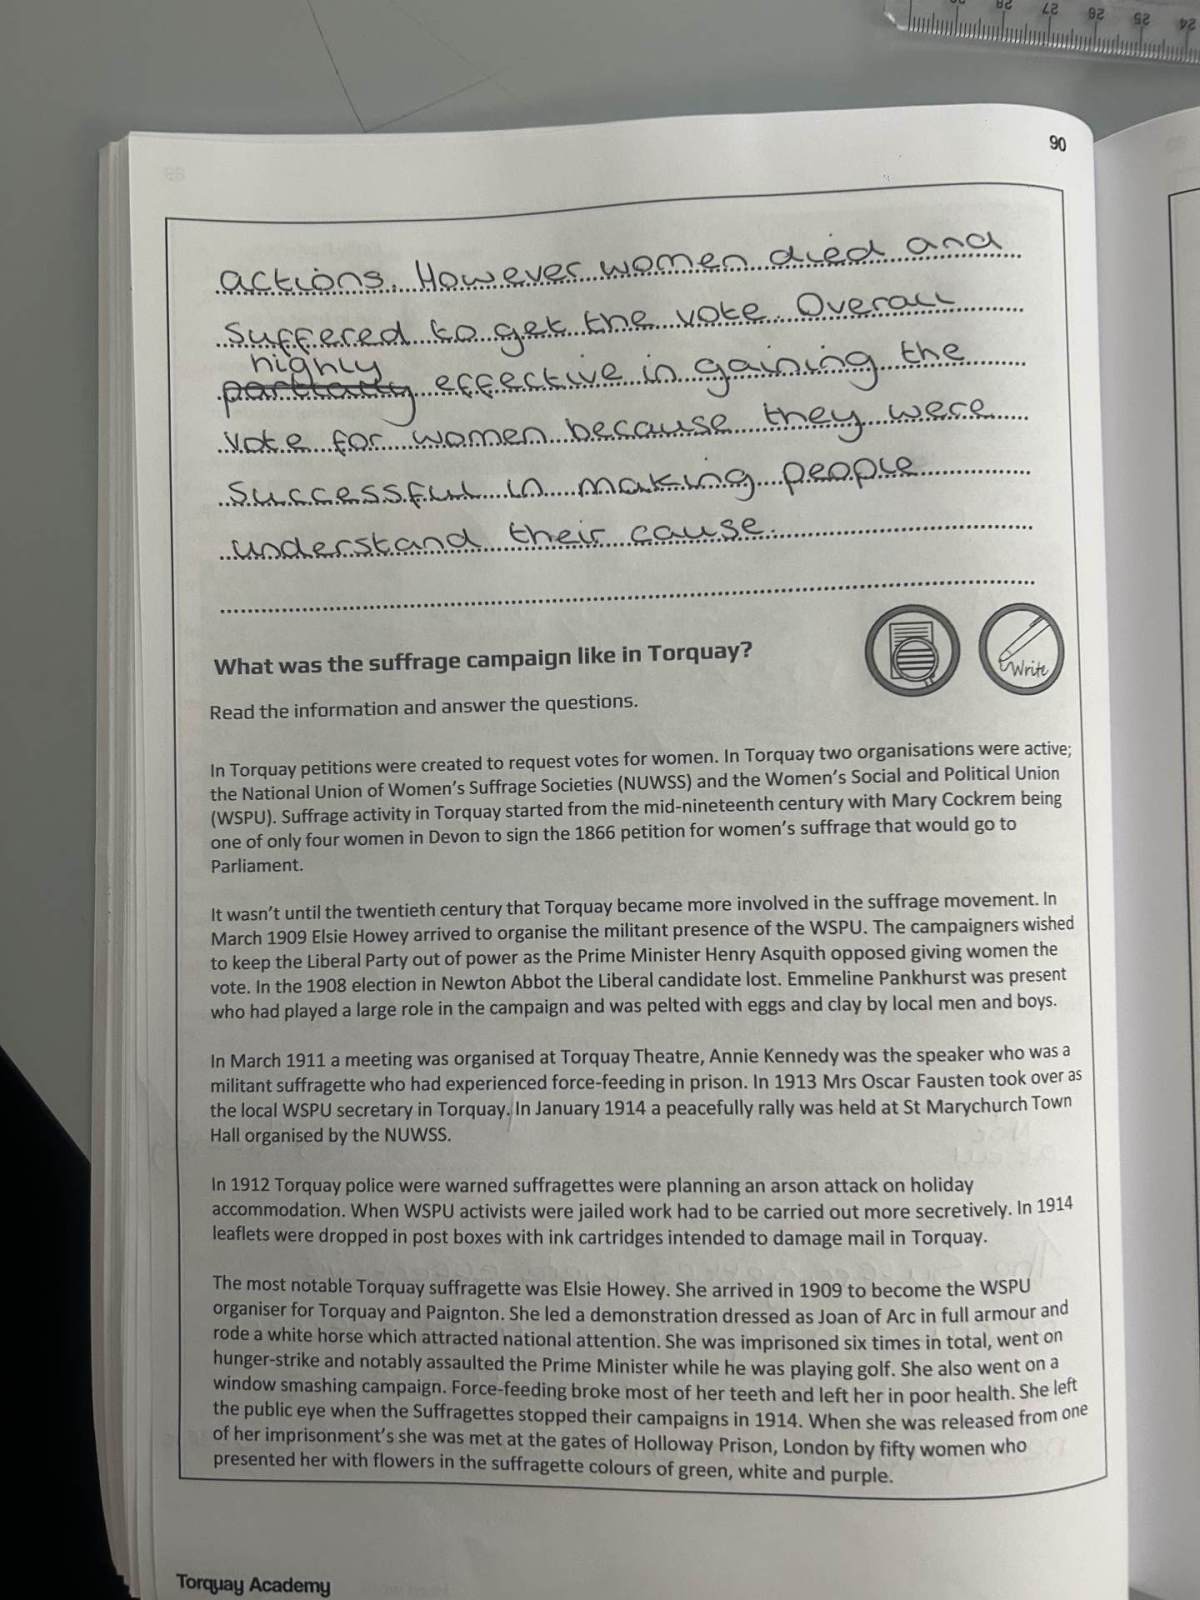 28 27 26 25 24
90
actions. However women died and
suffered to get the vote. Overall
highly
partially effective in gaining the
vote for women because they were
successful in making people
understand their cause.
What was the suffrage campaign like in Torquay?
Write
Read the information and answer the questions.
In Torquay petitions were created to request votes for women. In Torquay two organisations were active;
the National Union of Women's Suffrage Societies (NUWSS) and the Women's Social and Political Union
(WSPU). Suffrage activity in Torquay started from the mid-nineteenth century with Mary Cockrem being
one of only four women in Devon to sign the 1866 petition for women's suffrage that would go to
Parliament.
It wasn't until the twentieth century that Torquay became more involved in the suffrage movement. In
March 1909 Elsie Howey arrived to organise the militant presence of the WSPU. The campaigners wished
to keep the Liberal Party out of power as the Prime Minister Henry Asquith opposed giving women the
vote. In the 1908 election in Newton Abbot the Liberal candidate lost. Emmeline Pankhurst was present
who had played a large role in the campaign and was pelted with eggs and clay by local men and boys.
In March 1911 a meeting was organised at Torquay Theatre, Annie Kennedy was the speaker who was a
militant suffragette who had experienced force-feeding in prison. In 1913 Mrs Oscar Fausten took over as
the local WSPU secretary in Torquay. In January 1914 a peacefully rally was held at St Marychurch Town
Hall organised by the NUWSS.
In 1912 Torquay police were warned suffragettes were planning an arson attack on holiday
accommodation. When WSPU activists were jailed work had to be carried out more secretively. In 1914
leaflets were dropped in post boxes with ink cartridges intended to damage mail in Torquay.
The most notable Torquay suffragette was Elsie Howey. She arrived in 1909 to become the WSPU
organiser for Torquay and Paignton. She led a demonstration dressed as Joan of Arc in full armour and
rode a white horse which attracted national attention. She was imprisoned six times in total, went on
hunger-strike and notably assaulted the Prime Minister while he was playing golf. She also went on a
window smashing campaign. Force-feeding broke most of her teeth and left her in poor health. She left
the public eye when the Suffragettes stopped their campaigns in 1914. When she was released from one
of her imprisonment's she was met at the gates of Holloway Prison, London by fifty women who
presented her with flowers in the suffragette colours of green, white and purple.
Torquay Academy